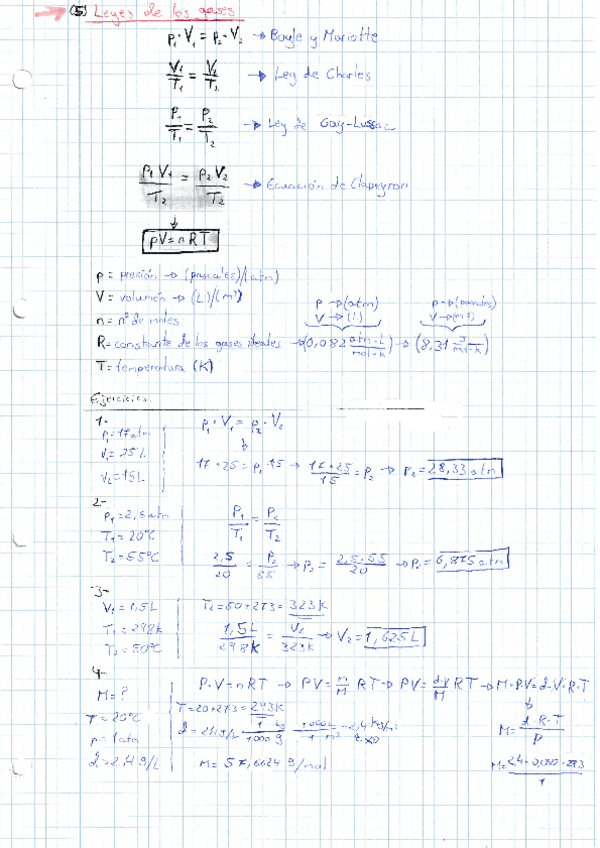 (5) Leyes de los gases
p₁·V₁ = p₂·V₂ → Boyle y Mariotte
V₁/T₁ = V₂/T₂ → Ley de Charles
P₁/T₁ = P₂/T₂ → Ley de Gay-Lussac
P₁V₁/T₂ = P₂V₂/T₂ → Ecuación de Clapeyron
↓
pV = nRT
p = presión → (pascales)/(atm)
V = volumen → (L)/(m³)
p → (atm)
V → (l)
V → (m³)
n = nº de moles
R = constante de los gases ideales → (0,082 atm·L/mol·K) → (8,31 J/mol·K)
T = temperatura (K)
Ejercicios
1-
P₁ = 17 atm
V₁ = 25 L
V₂ = 15 L
p₁·V₁ = p₂·V₂
↓
17·25 = p₂·15 → 17·25/15 = p₂ → p₂ = 28,33 atm
2-
P₁ = 2,5 atm
T₁ = 20ºC
T₂ = 55ºC
P₁/T₁ = P₂/T₂
2,5/20 = P₂/55 → p₂ = 2,5·55/20 → p₂ = 6,875 atm
3-
V₁ = 1,5 L
T₁ = 298 k
T₂ = 50ºC
T₂ = 50 + 273 = 323 k
1,5 L/298 K = V₂/323 k → V₂ = 1,625 L
4-
M = ?
T = 20ºC
p = 1 atm
d = 2,4 g/L
P·V = nRT → PV = m/M RT → PV = dV/M RT → M·P·V = d·V·R·T
↓
T = 20 + 273 = 293 K
M = d·R·T/P
M = 57,6624 g/mol